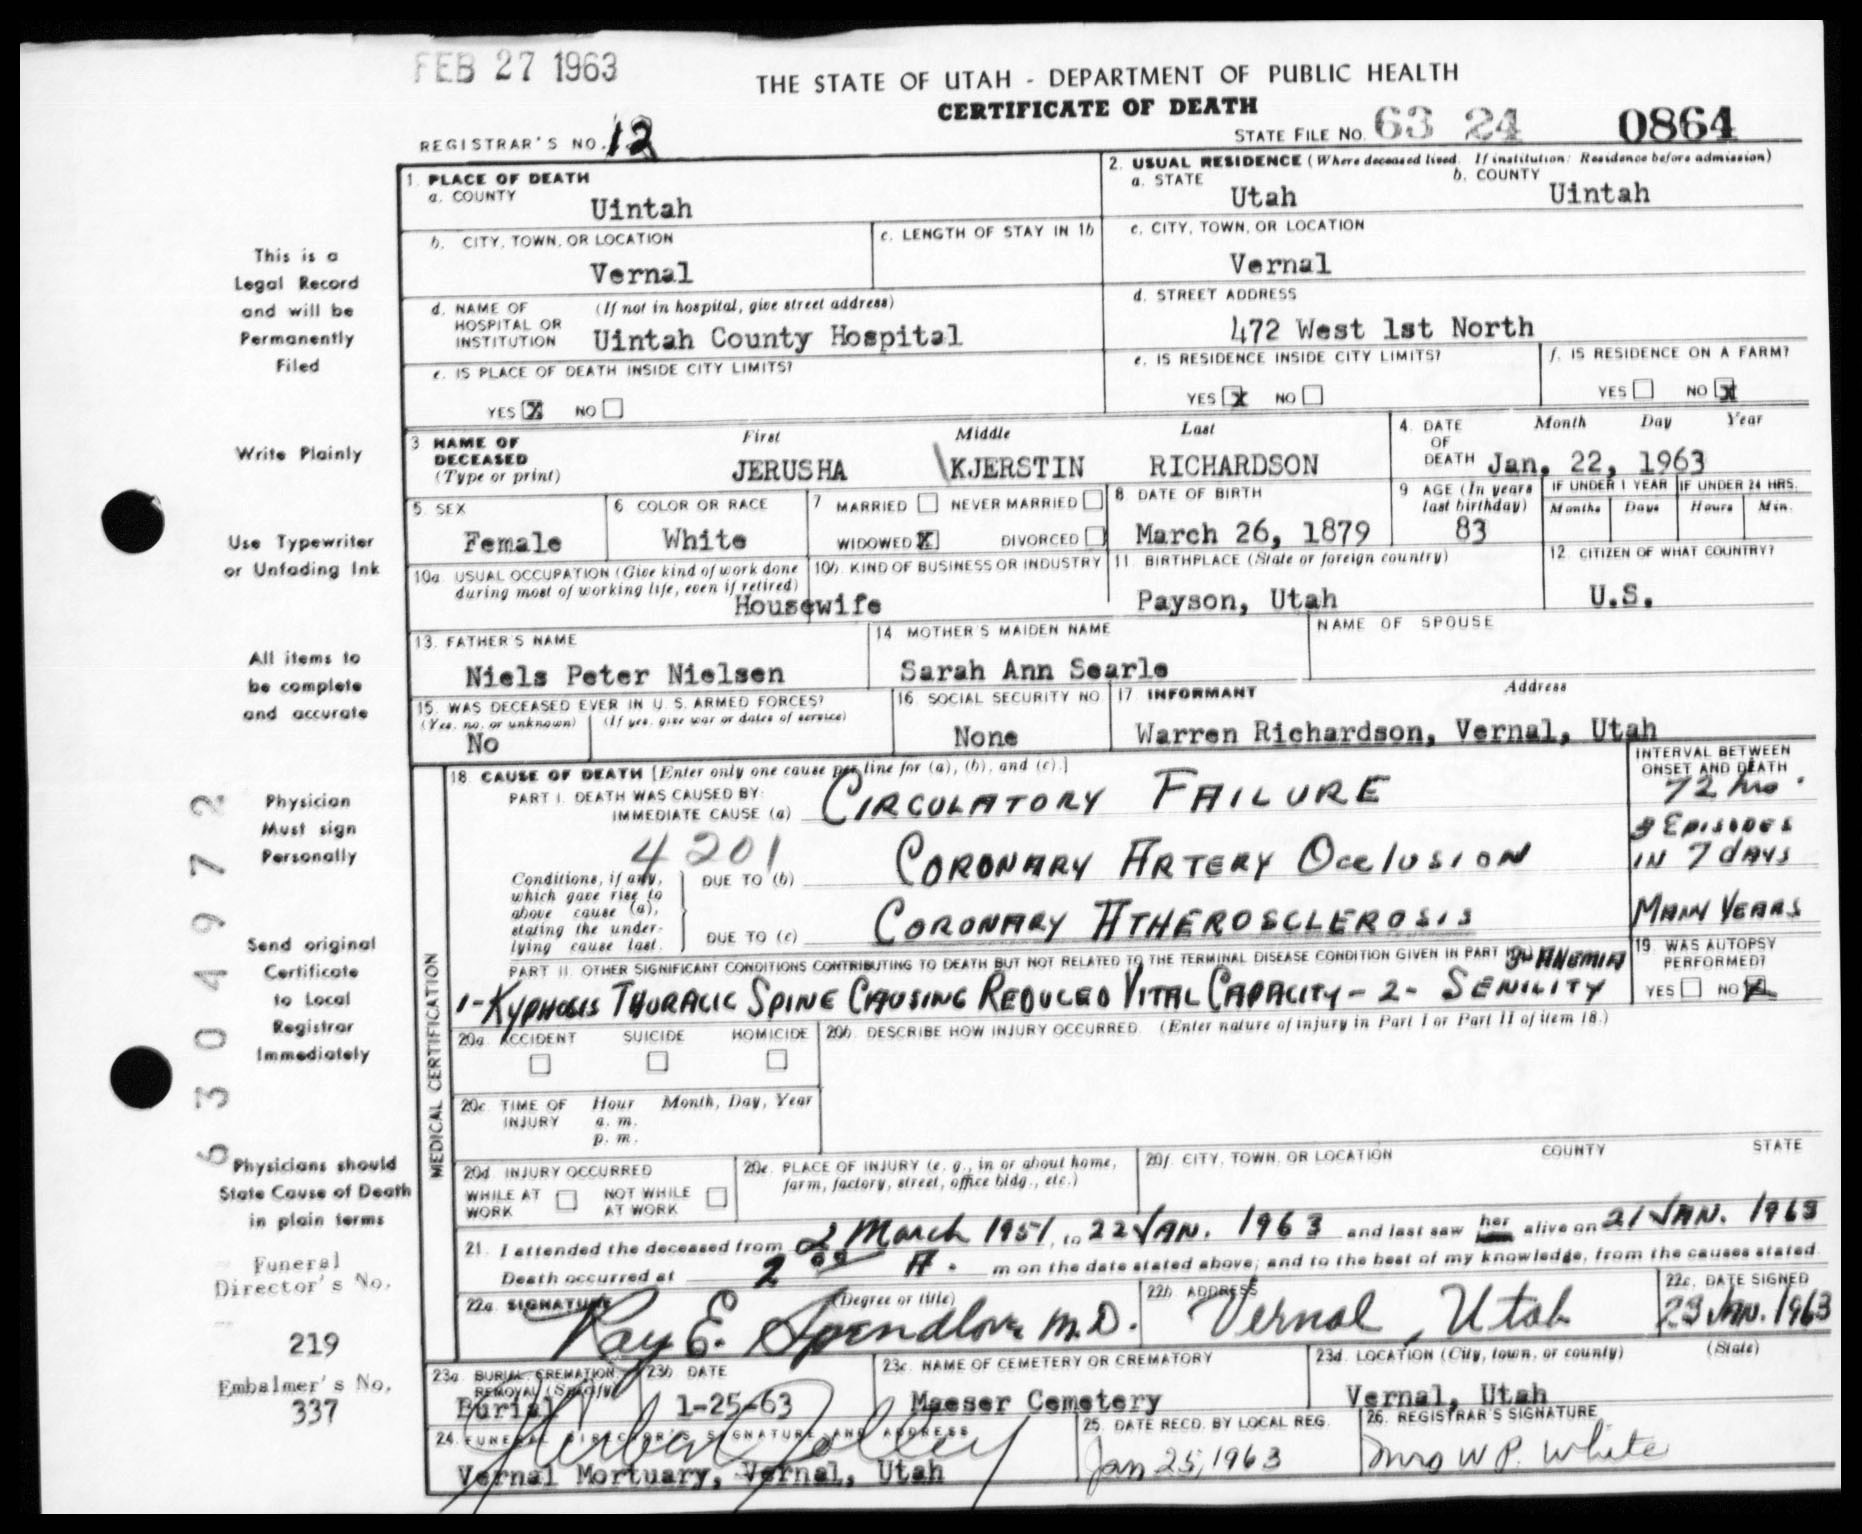 FEB 27 1963
THE STATE OF UTAH - DEPARTMENT OF PUBLIC HEALTH
CERTIFICATE OF DEATH
REGISTRAR'S NO. 12
STATE FILE NO. 63 24 0864
1. PLACE OF DEATH
a. COUNTY
Uintah
2. USUAL RESIDENCE (Where deceased lived. If institution: Residence before admission)
a. STATE
Utah
b. COUNTY
Uintah
b. CITY, TOWN, OR LOCATION
Vernal
c. LENGTH OF STAY IN 1b
c. CITY, TOWN, OR LOCATION
Vernal
d. NAME OF HOSPITAL OR INSTITUTION
(If not in hospital, give street address)
Uintah County Hospital
d. STREET ADDRESS
472 West 1st North
e. IS PLACE OF DEATH INSIDE CITY LIMITS?
YES X NO
e. IS RESIDENCE INSIDE CITY LIMITS?
YES X NO
f. IS RESIDENCE ON A FARM?
YES NO X
3 NAME OF DECEASED
(Type or print)
First Middle Last
JERUSHA KJERSTIN RICHARDSON
4. DATE OF DEATH
Month Day Year
Jan. 22, 1963
5. SEX
Female
6 COLOR OR RACE
White
7 MARRIED NEVER MARRIED
WIDOWED X DIVORCED
8 DATE OF BIRTH
March 26, 1879
9 AGE (In years last birthday)
83
IF UNDER 1 YEAR
Months Days
IF UNDER 24 HRS.
Hours Min.
10a. USUAL OCCUPATION (Give kind of work done
during most of working life, even if retired)
Housewife
10b. KIND OF BUSINESS OR INDUSTRY
11. BIRTHPLACE (State or foreign country)
Payson, Utah
12. CITIZEN OF WHAT COUNTRY?
U.S.
13. FATHER'S NAME
Niels Peter Nielsen
14 MOTHER'S MAIDEN NAME
Sarah Ann Searle
NAME OF SPOUSE
15. WAS DECEASED EVER IN U.S. ARMED FORCES?
(Yes, no, or unknown) (If yes, give war or dates of service)
No
16 SOCIAL SECURITY NO.
None
17 INFORMANT Address
Warren Richardson, Vernal, Utah
MEDICAL CERTIFICATION
18 CAUSE OF DEATH [Enter only one cause per line for (a), (b), and (c).]
INTERVAL BETWEEN
ONSET AND DEATH
PART I. DEATH WAS CAUSED BY:
IMMEDIATE CAUSE (a) CIRCULATORY FAILURE
72 hrs.
4201
Conditions, if any,
which gave rise to
above cause (a),
stating the under-
lying cause last.
DUE TO (b) CORONARY ARTERY OCCLUSION
EPISODES
IN 7 DAYS
DUE TO (c) CORONARY ATHEROSCLEROSIS
MANY YEARS
PART II. OTHER SIGNIFICANT CONDITIONS CONTRIBUTING TO DEATH BUT NOT RELATED TO THE TERMINAL DISEASE CONDITION GIVEN IN PART 3- ANEMIA
1- KYPHOSIS THORACIC SPINE CAUSING REDUCED VITAL CAPACITY - 2 - SENILITY
19. WAS AUTOPSY PERFORMED?
YES NO X
20a. ACCIDENT SUICIDE HOMICIDE
20b. DESCRIBE HOW INJURY OCCURRED. (Enter nature of injury in Part I or Part II of item 18.)
20c. TIME OF INJURY
Hour Month, Day, Year
a. m.
p. m.
20d. INJURY OCCURRED
WHILE AT WORK NOT WHILE AT WORK
20e. PLACE OF INJURY (e. g., in or about home,
farm, factory, street, office bldg., etc.)
20f. CITY, TOWN, OR LOCATION COUNTY STATE
21. I attended the deceased from 2 March 1951, to 22 JAN. 1963 and last saw her alive on 21 JAN. 1963
Death occurred at 2 00 A. m on the date stated above; and to the best of my knowledge, from the causes stated.
22a. SIGNATURE (Degree or title)
Ray E. Spendlove M.D.
22b. ADDRESS
Vernal, Utah
22c. DATE SIGNED
23 JAN. 1963
23a. BURIAL, CREMATION,
REMOVAL (Specify)
Burial
23b DATE
1-25-63
23c. NAME OF CEMETERY OR CREMATORY
Maeser Cemetery
23d. LOCATION (City, town, or county) (State)
Vernal, Utah
24. FUNERAL DIRECTOR'S SIGNATURE AND ADDRESS
Vernal Mortuary, Vernal, Utah
25. DATE RECD. BY LOCAL REG.
Jan 25, 1963
26. REGISTRAR'S SIGNATURE
Mrs W P. White
This is a
Legal Record
and will be
Permanently
Filed
Write Plainly
Use Typewriter
or Unfading Ink
All items to
be complete
and accurate
Physician
Must sign
Personally
Send original
Certificate
to Local
Registrar
Immediately
Physicians should
State Cause of Death
in plain terms
Funeral
Director's No.
219
Embalmer's No.
337
6304972